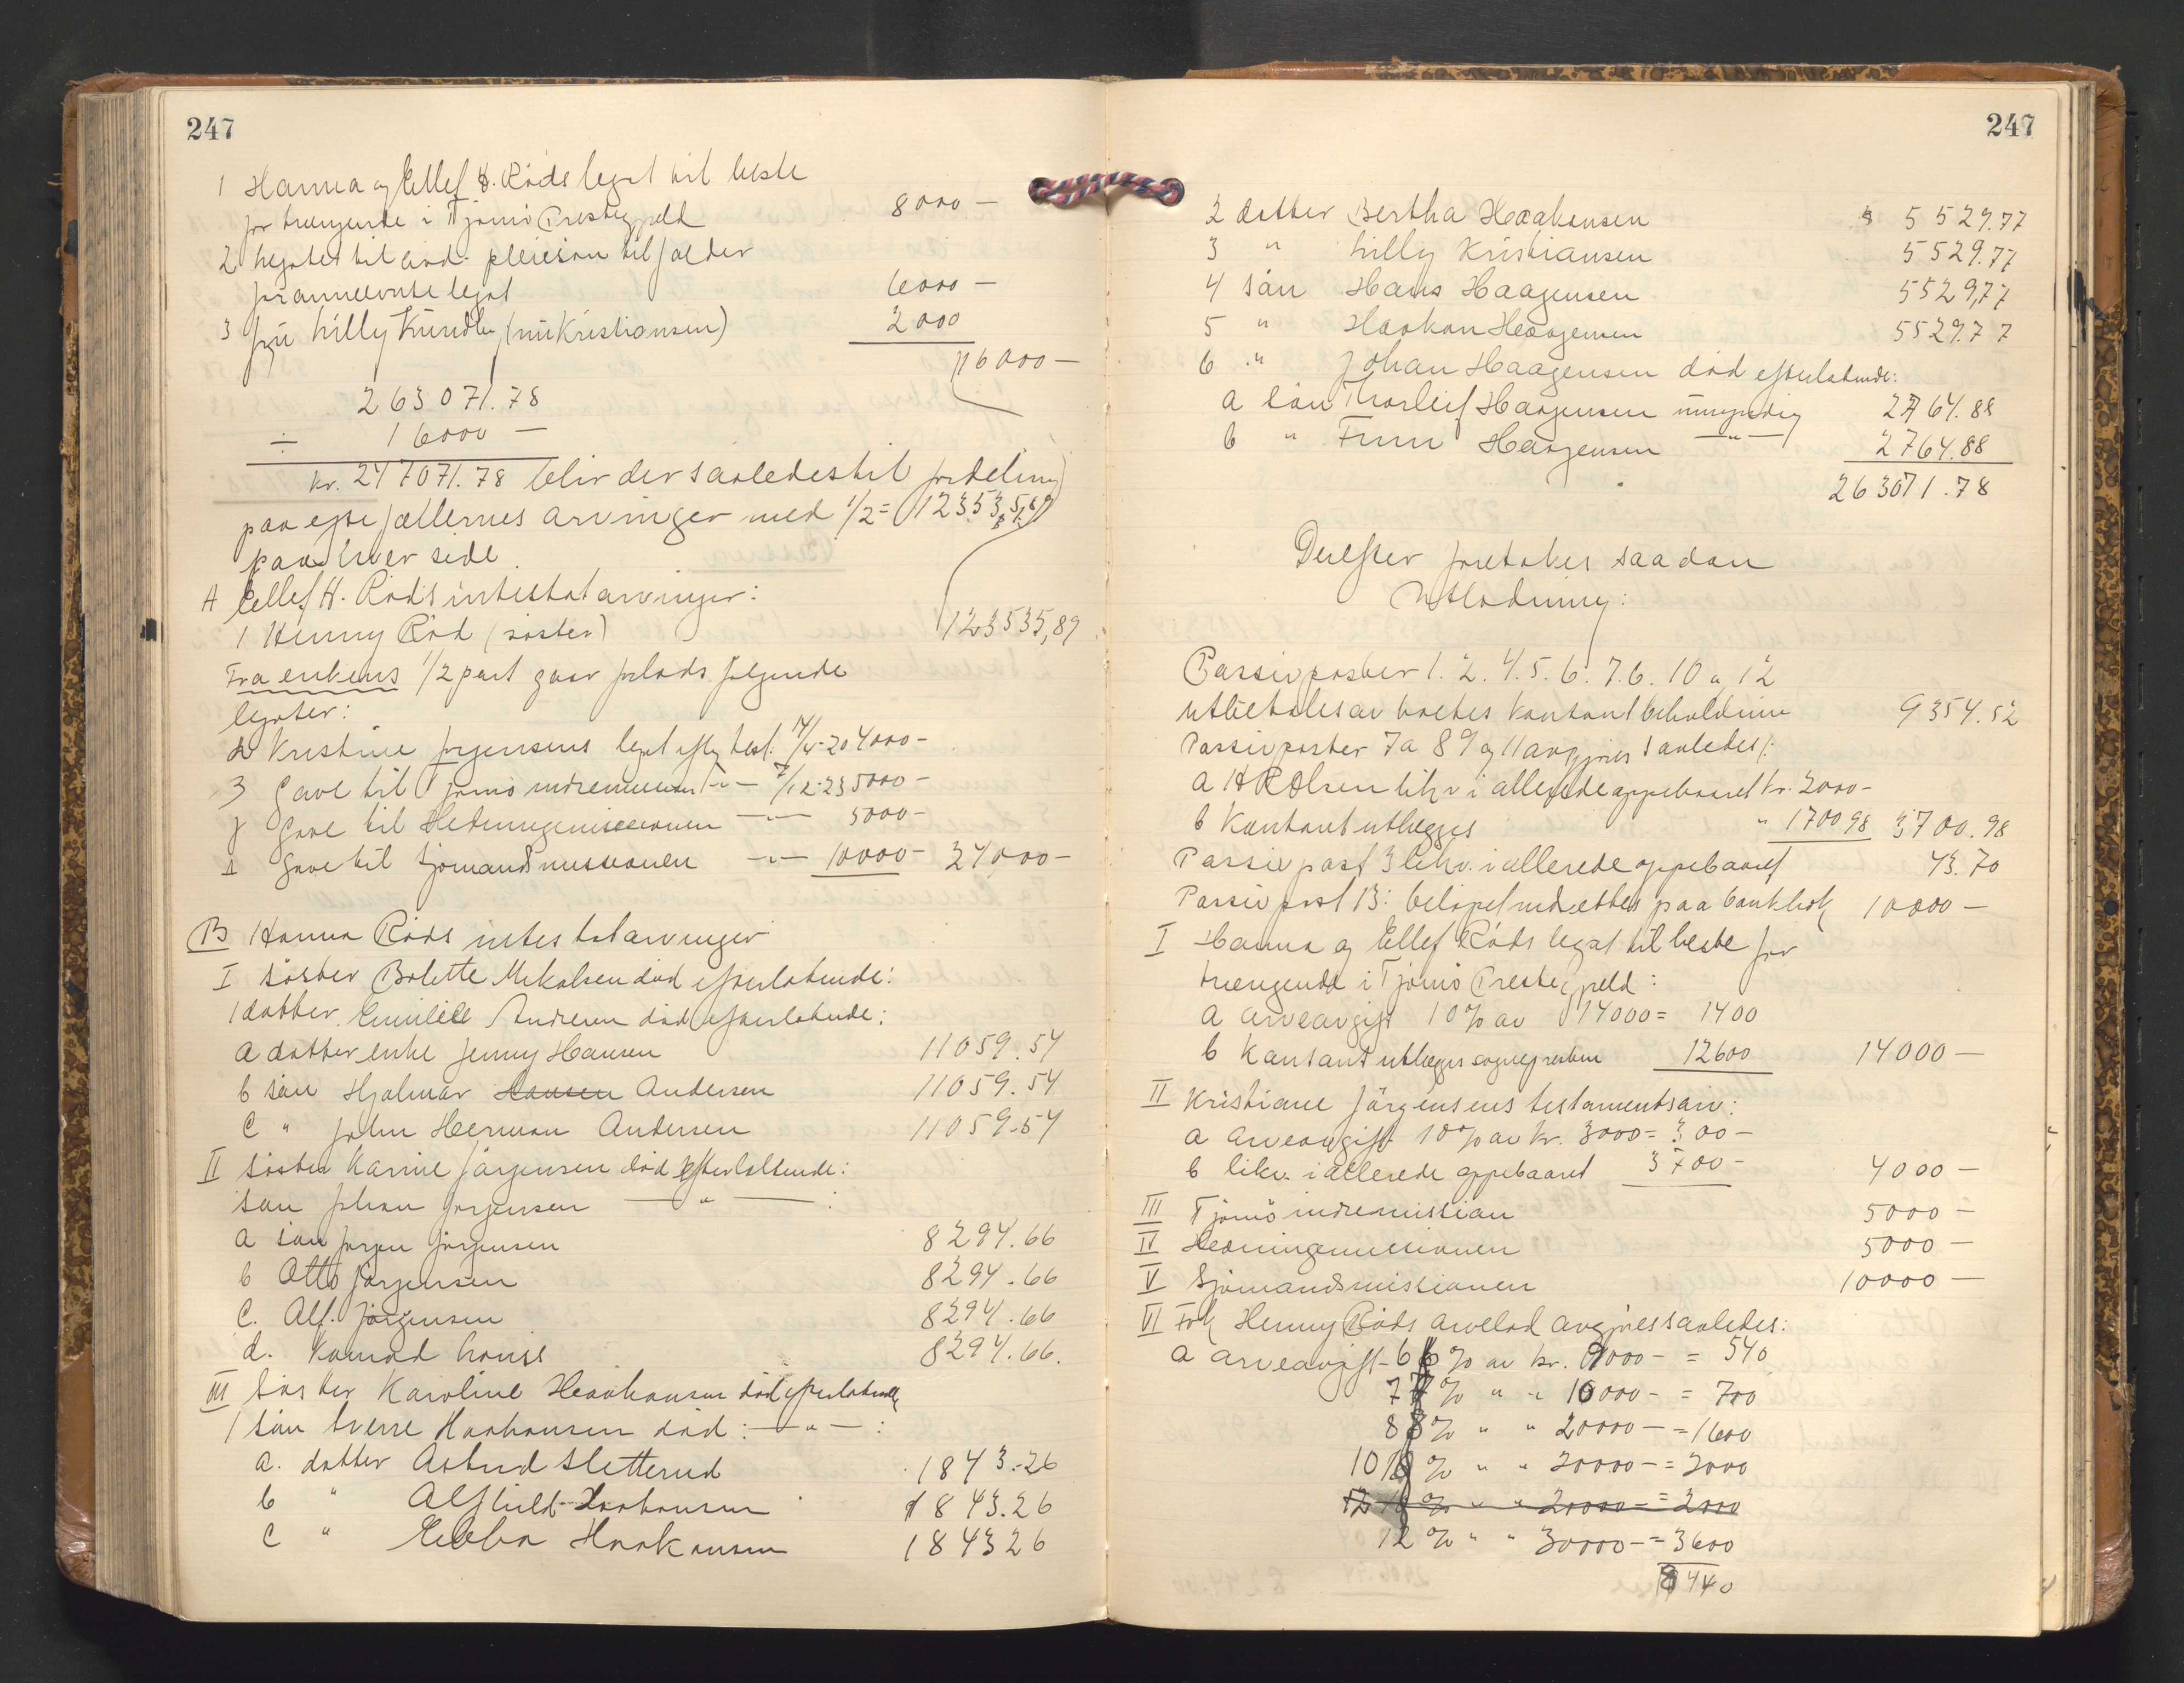 247
1 Hanna og Ellef H. Röds legat til beste
for trængende i Tjömö Prestegjeld 8000 —
2 Legatet til avd. pleiesön tilfalder
forannævnte legat 6000 —
3 fru Lilly Kundby (nu Kristiansen) 2000
16000 —
263071.78
÷ 16000 —
kr. 247071.78 blir der saaledes til fordeling
paa egtefællernes arvinger med 1/2 = 123535,89
paa hver side.
A Ellef H. Röds intestatarvinger:
1 Henny Röd (söster) 123535,89
Fra enkens 1/2 part gaar forlods følgende
legater:
Kristine Jörgensens legat efter test. 17/4-20 4000 —
Gave til Tjömö indremission —"— 7/12-23 5000 —
Gave til Hedningemissionen —"— 5000 —
Gave til Sjömandsmissionen —"— 10000 — 24000 —
B Hanna Röds intestatarvinger
I söster Bolette Mikalsen död efterlatende:
1 datter Emilie Andersen död efterlatende:
a datter enke Jenny Hansen 11059.54
b sön Hjalmar Hansen Andersen 11059.54
c " John Herman Andersen 11059.54
II Söster Karine Jörgensen död efterlatende:
sön Johan Jörgensen —"— :
a sön Jörgen Jörgensen 8294.66
b Otto Jörgensen 8294.66
c. Alf. Jörgensen 8294.66
d. Konrad 8294.66.
III Söster Karoline Haakansen död efterlatende
1 sön Sverre Haakansen död: —"— :
a. datter Astrid Sletterud 1843.26
b " Alfhild Haakansen 1843.26
c " Ebba Haakansen 1843 26
247
2 datter Bertha Haakansen 5529.77
3 " Lilly Kristiansen 5529.77
4 sön Hans Haagensen 5529,77
5 " Haakon Haagensen 5529.77
6 " Johan Haagensen död efterlatende:
a sön Thorleif Haagensen umyndig 2764.88
b " Finn Haagensen —"— 2764.88
263071.78
Derefter foretakes saadan
Utlodning:
Passivposter 1. 2. 4. 5. 6. 7.b. 10 a 12
utbetales av boets kontantbeholdning 9354.52
Passivposter 7a 8 9 og 11 avgjøres saaledes:
a H R Olsen likv i allerede oppebaaret kr. 2000 —
b Kontant utlægges " 1700 98 3700.98
Passivpost 3 likv. i allerede oppebaaret 43.70
Passivpost 13: beløpet indsættes paa bankbok 10000 —
I Hanna og Ellef Röds legat til beste for
trængende i Tjömö Prestegjeld:
a arveavgift 10% av 14000 = 1400
b Kontant utlægges sognepresten 12600 14000 —
II Kristiane Jörgensens testamentsarv:
a arveavgift 10% av kr. 3000 = 300 —
b likv. i allerede oppebaaret 3700 — 4000 —
III Tjömö indremission 5000 —
IV Hedningemissionen 5000 —
V Sjömandsmissionen 10000 —
VI Frk Henny Röds arvelod avgjøres saaledes:
a arveavgift 6 6% av kr. 9000 — = 540
7 7% " " 10000 — = 700
8 8% " " 20000 — = 1600
10 10% " " 20000 — = 2000
12 10% " " 20000 — = 2000
12% " " 30000 — = 3600
8440